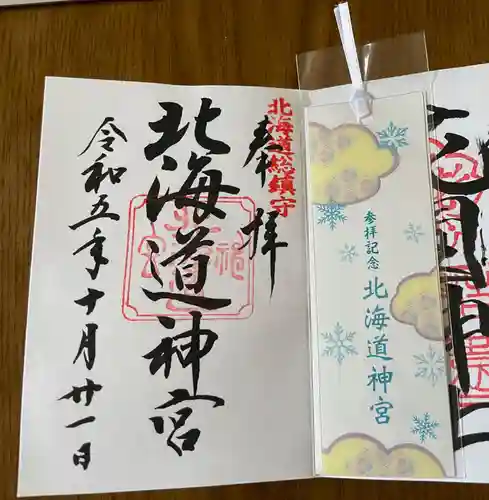 北海道総鎮守
奉拝
北海道神宮
令和五年十月廿一日
参拝記念
北海道神宮